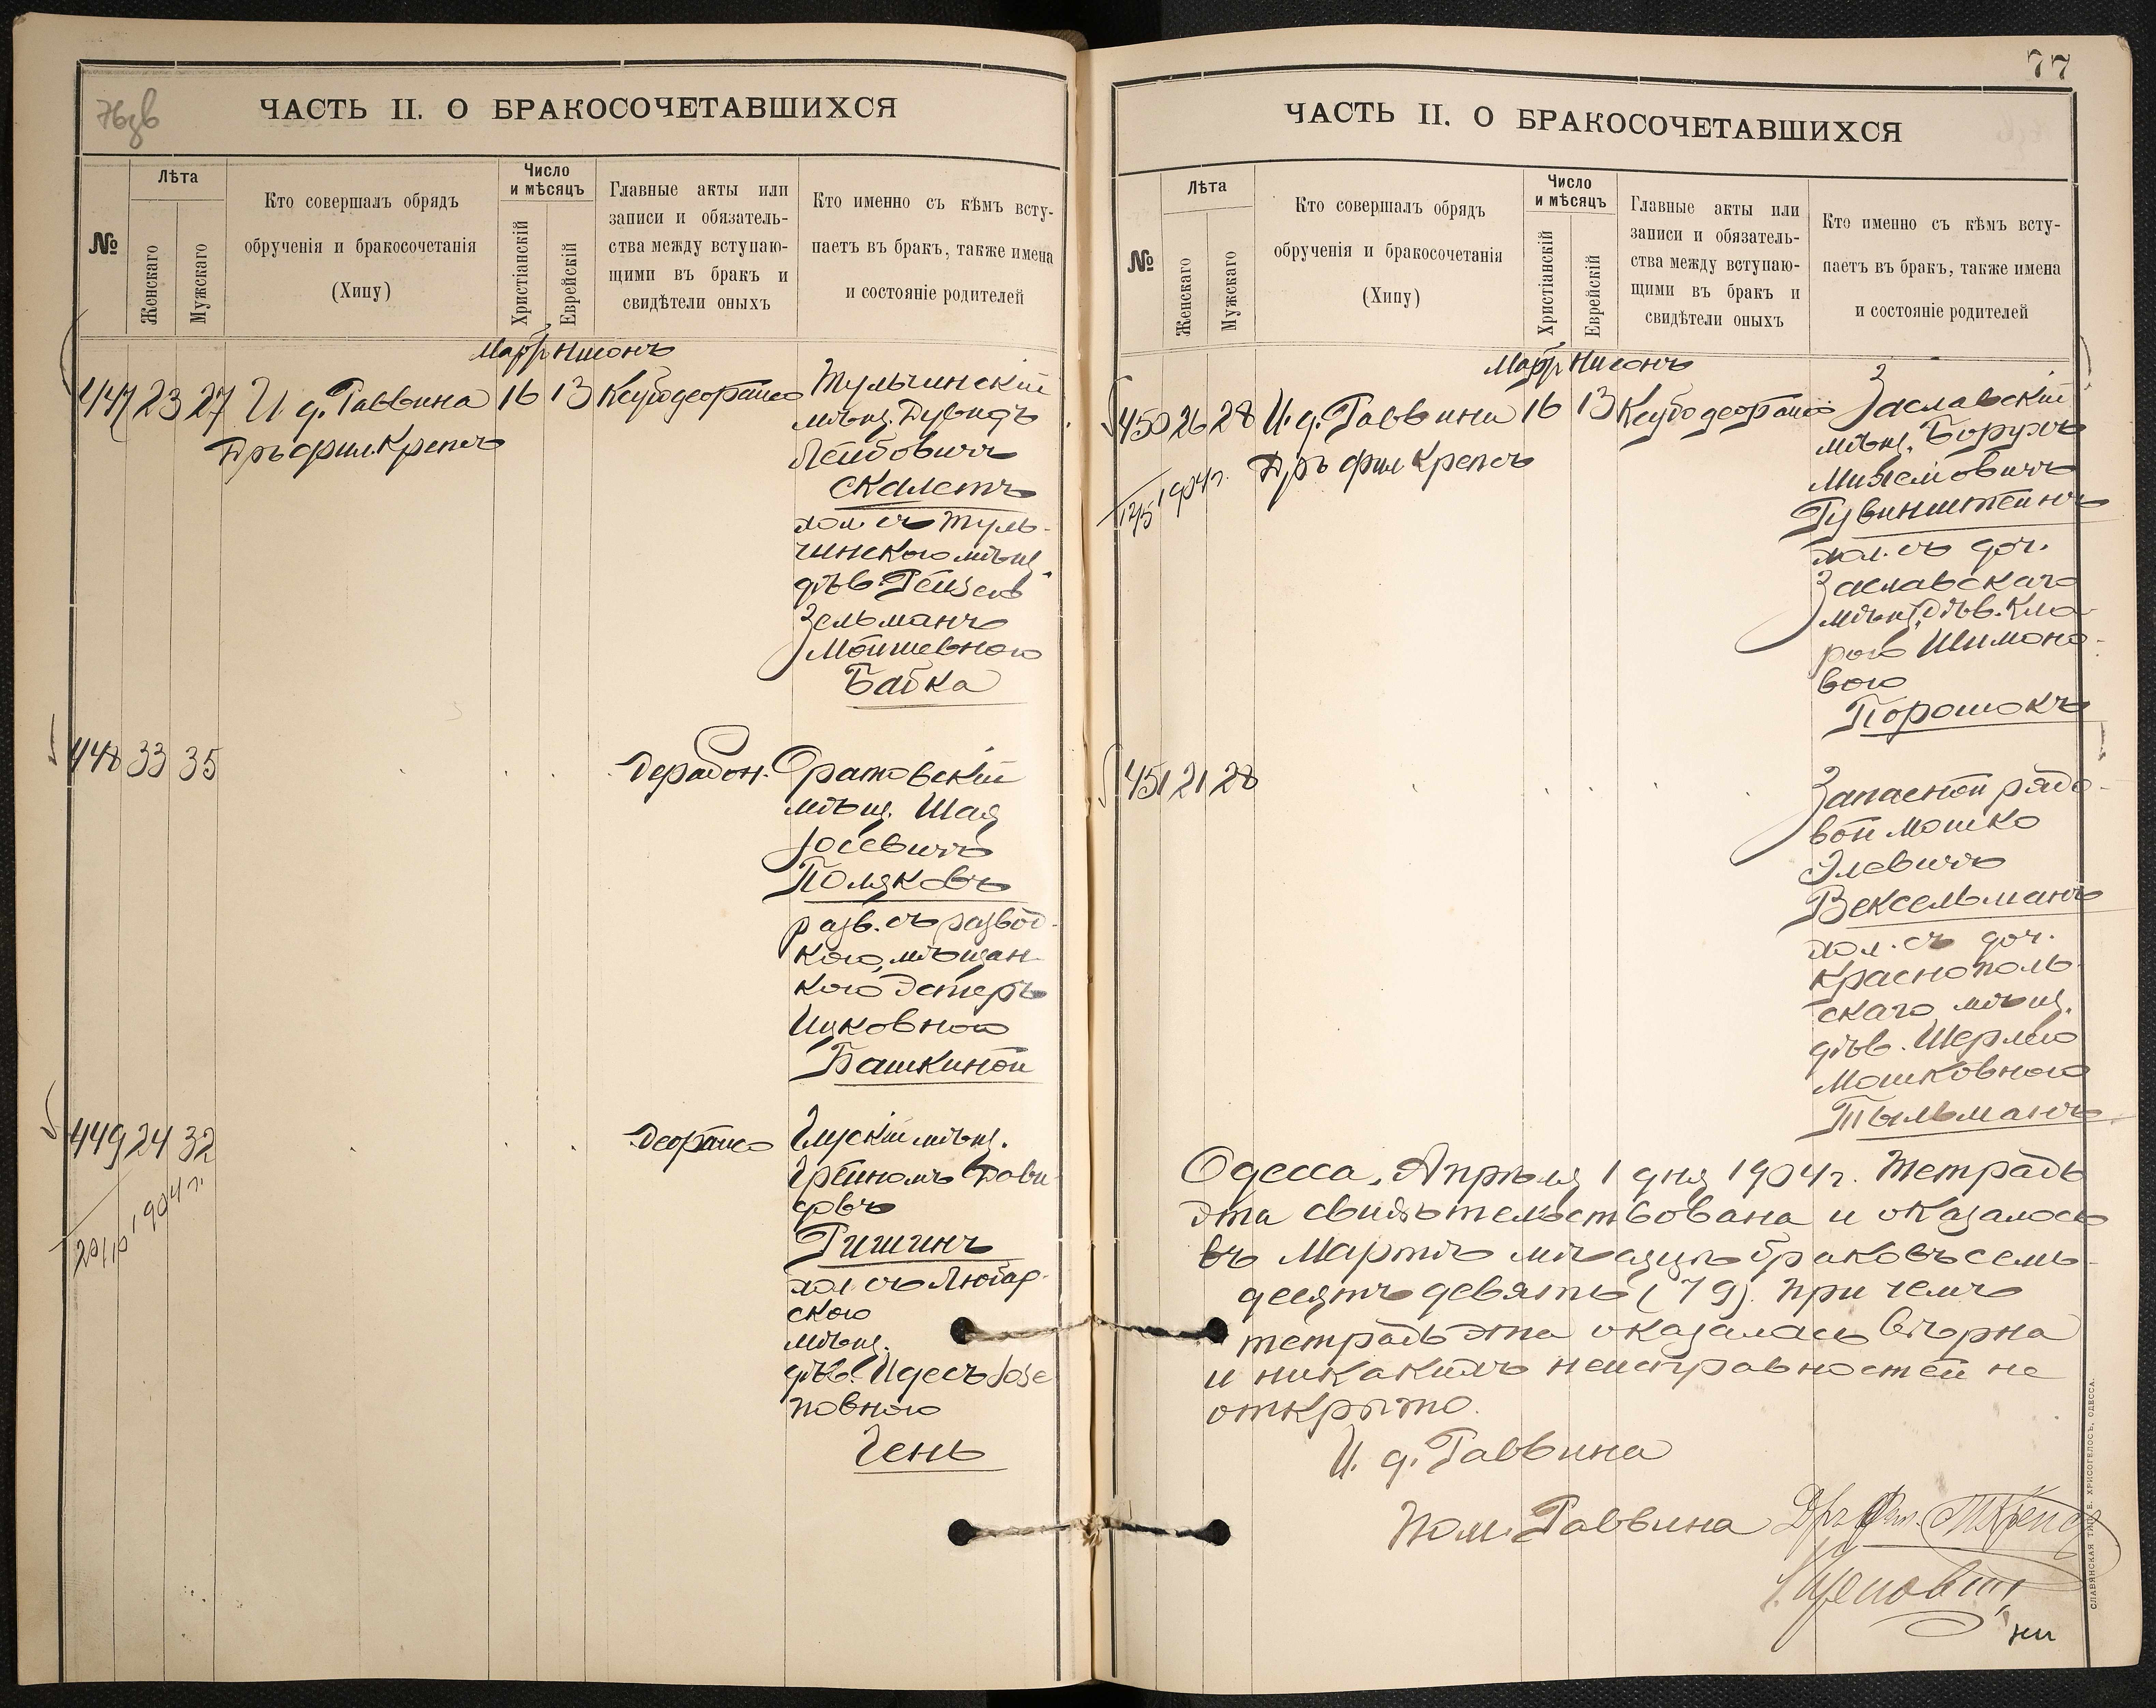 76зв
ЧАСТЬ II. О БРАКОСОЧЕТАВШИХСЯ
№
Лѣта
Женскаго
Мужскаго
Кто совершалъ обрядъ
обрученія и бракосочетанія
(Хипу)
Число
и мѣсяцъ
Христіанскій
Еврейскій
Главные акты или
записи и обязатель-
ства между вступаю-
щими въ бракъ и
свидѣтели оныхъ
Кто именно съ кѣмъ всту-
паетъ въ бракъ, также имена
и состояніе родителей
Мартъ Нисонъ
447 23 27 И д. Раввина 16 13
Дръ фил. Крепсъ
Тульчинскій
мѣщ. Дувидъ
Лейбовичъ
Скалетъ
хол. съ Туль-
чинскою мѣщ.
дѣв.
Зельманъ
Мошевною
Бабка
448 33 35
Оратовскій
мѣщ. Шая
Іосевичъ
Поляковъ
разв. съ развод-
кою, мѣщан-
кою Эстеръ
Ицковною
Башкиной
449 24 32
мѣщ.
Дави-
довъ
Ришинъ
хол. съ Любар-
скою
мѣщ.
дѣв. Идесъ Іосе
повною
Чень
1904 г.
77
ЧАСТЬ II. О БРАКОСОЧЕТАВШИХСЯ
№
Лѣта
Женскаго
Мужскаго
Кто совершалъ обрядъ
обрученія и бракосочетанія
(Хипу)
Число
и мѣсяцъ
Христіанскій
Еврейскій
Главные акты или
записи и обязатель-
ства между вступаю-
щими въ бракъ и
свидѣтели оныхъ
Кто именно съ кѣмъ всту-
паетъ въ бракъ, также имена
и состояніе родителей
Мартъ Нисонъ
450 26 28 И. д. Раввина 16 13
Дръ фил Крепсъ
1904 г.
Заславскій
мѣщ. Борухъ
Рувинштейнъ
хол. съ доч.
Заславскаго
мѣщ. дѣв. Кла-
рою Шимоно-
вою
Порошокъ
451 21 28
Запасной рядо-
вой Мошко
Элевичъ
Вексельманъ
хол. съ доч.
Краснополь-
скаго мѣщ.
дѣв. Шерлею
Мошковною
Тыльманъ
Одесса, Апрѣля 1 дня 1904 г. Тетрадь
эта свидѣтельствована и оказалось
въ Мартѣ мѣсяцѣ браковъ семь-
десятъ девять (79). При чемъ
тетрадь эта оказалась вѣрна
и никакихъ неисправностей не
открыто.
И. д. Раввина
Пом. Раввина Дръ Фил. Крепсъ
СЛАВЯНСКАЯ ТИП. Е. ХРИСОГЕЛОСЪ, ОДЕССА.